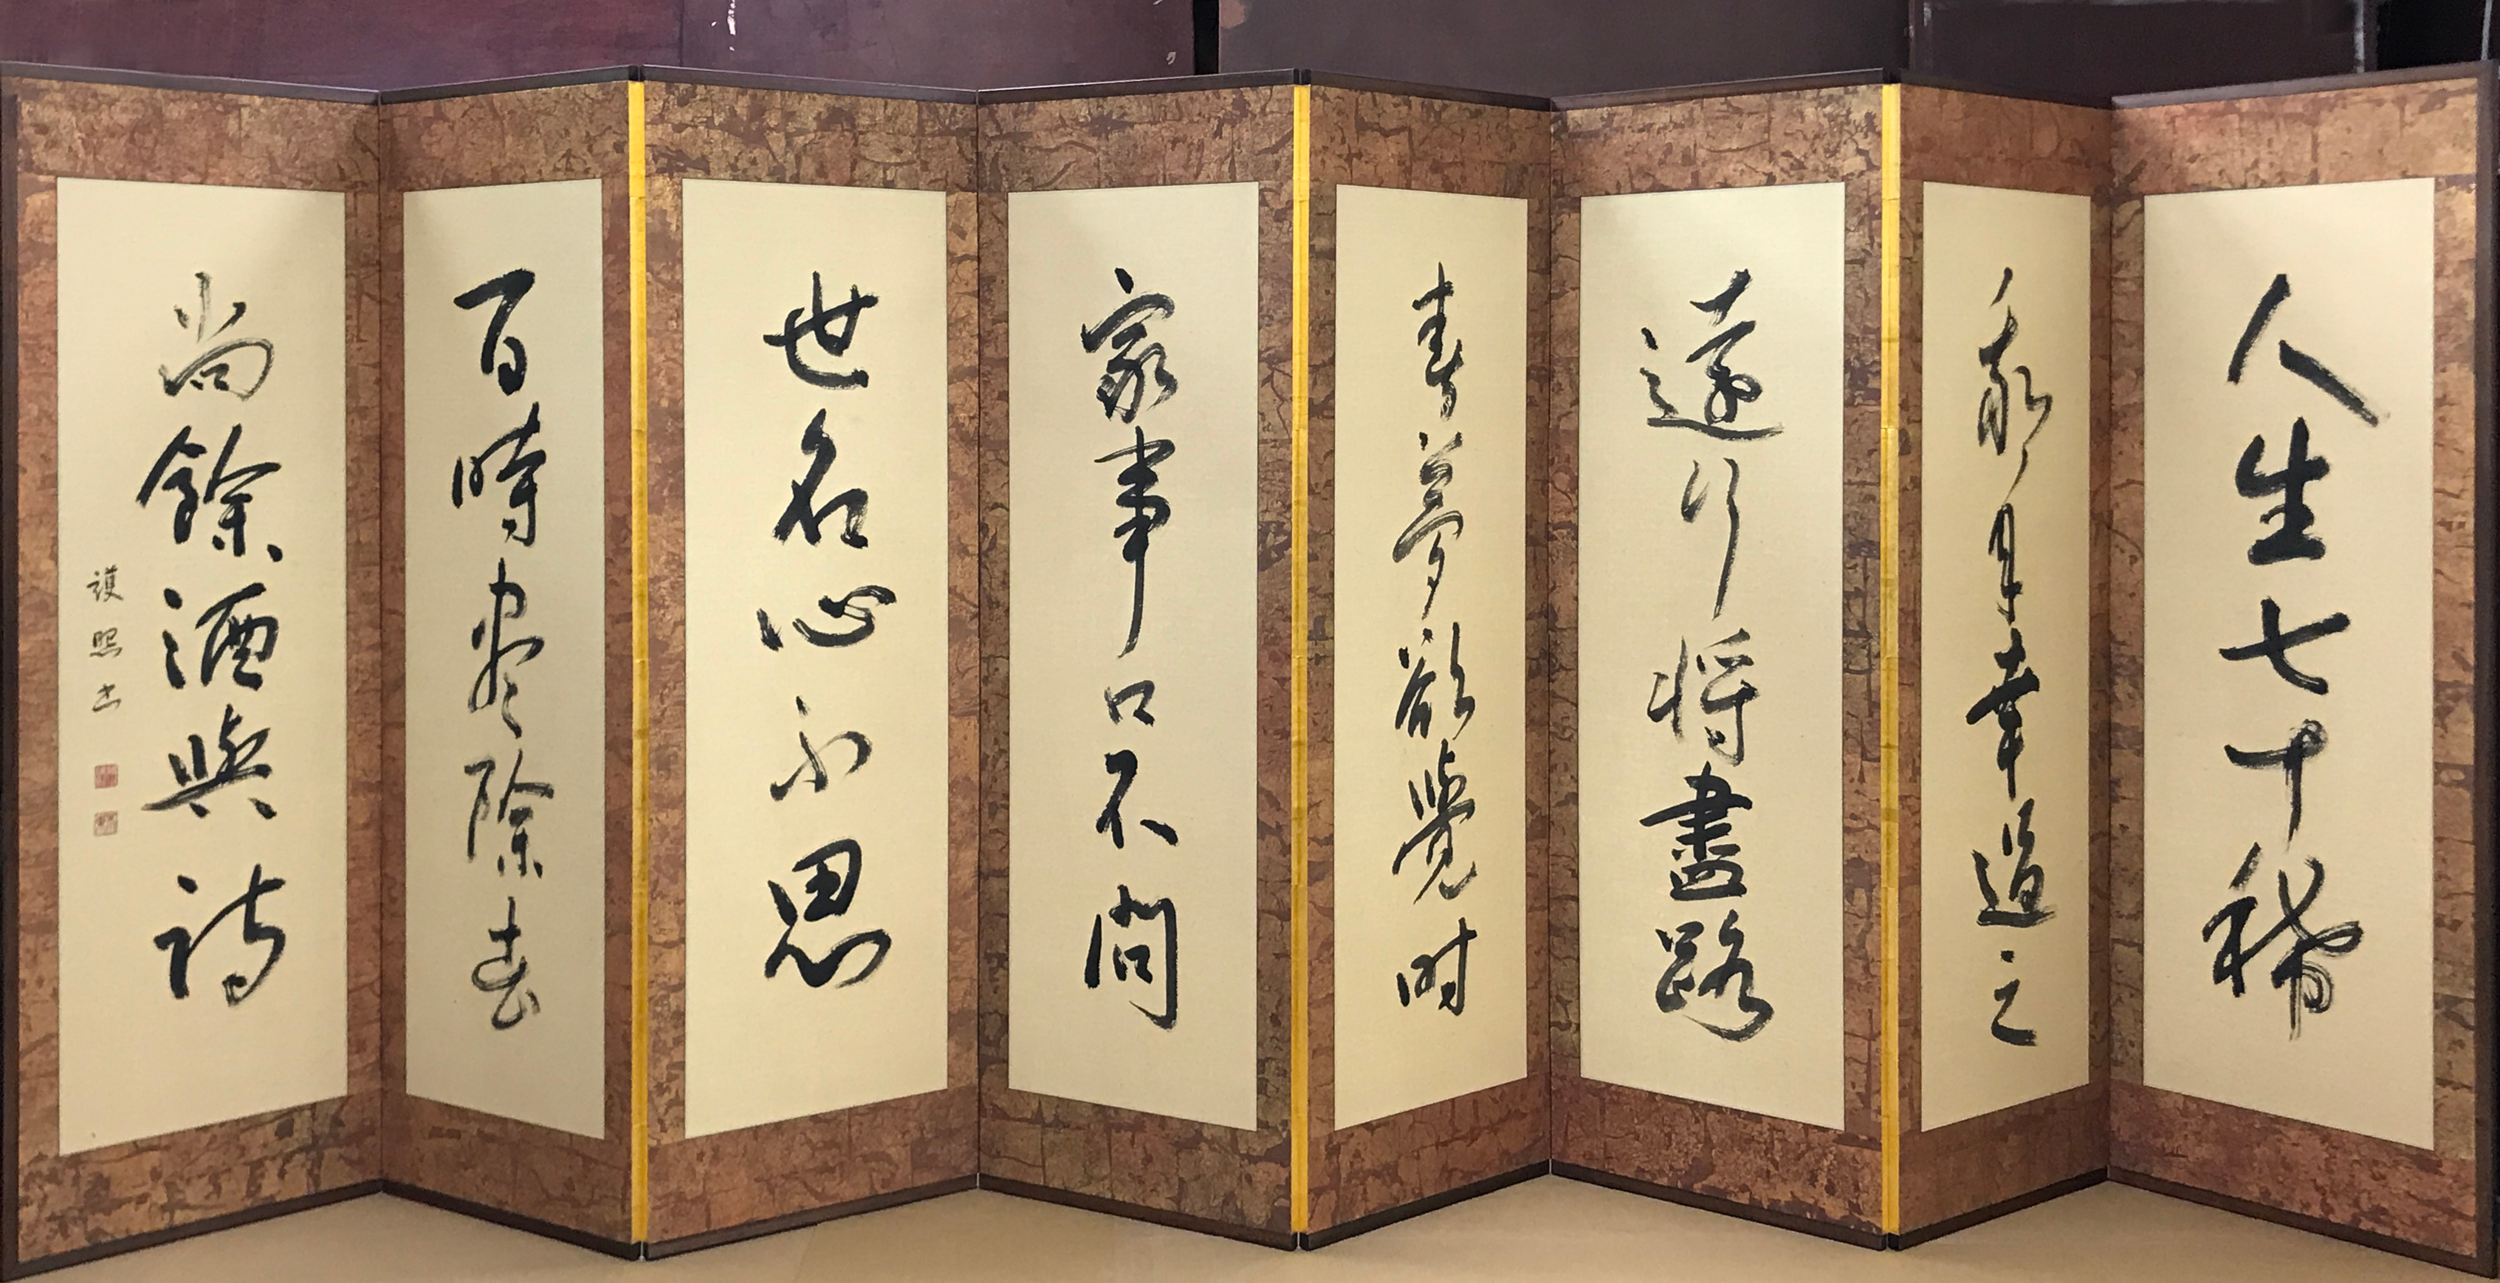 人生七十稀
我年幸過之
遠行将盡路
春夢欲覺時
家事口不問
世名心不思
百時尽除去
尚餘酒與詩
護照書